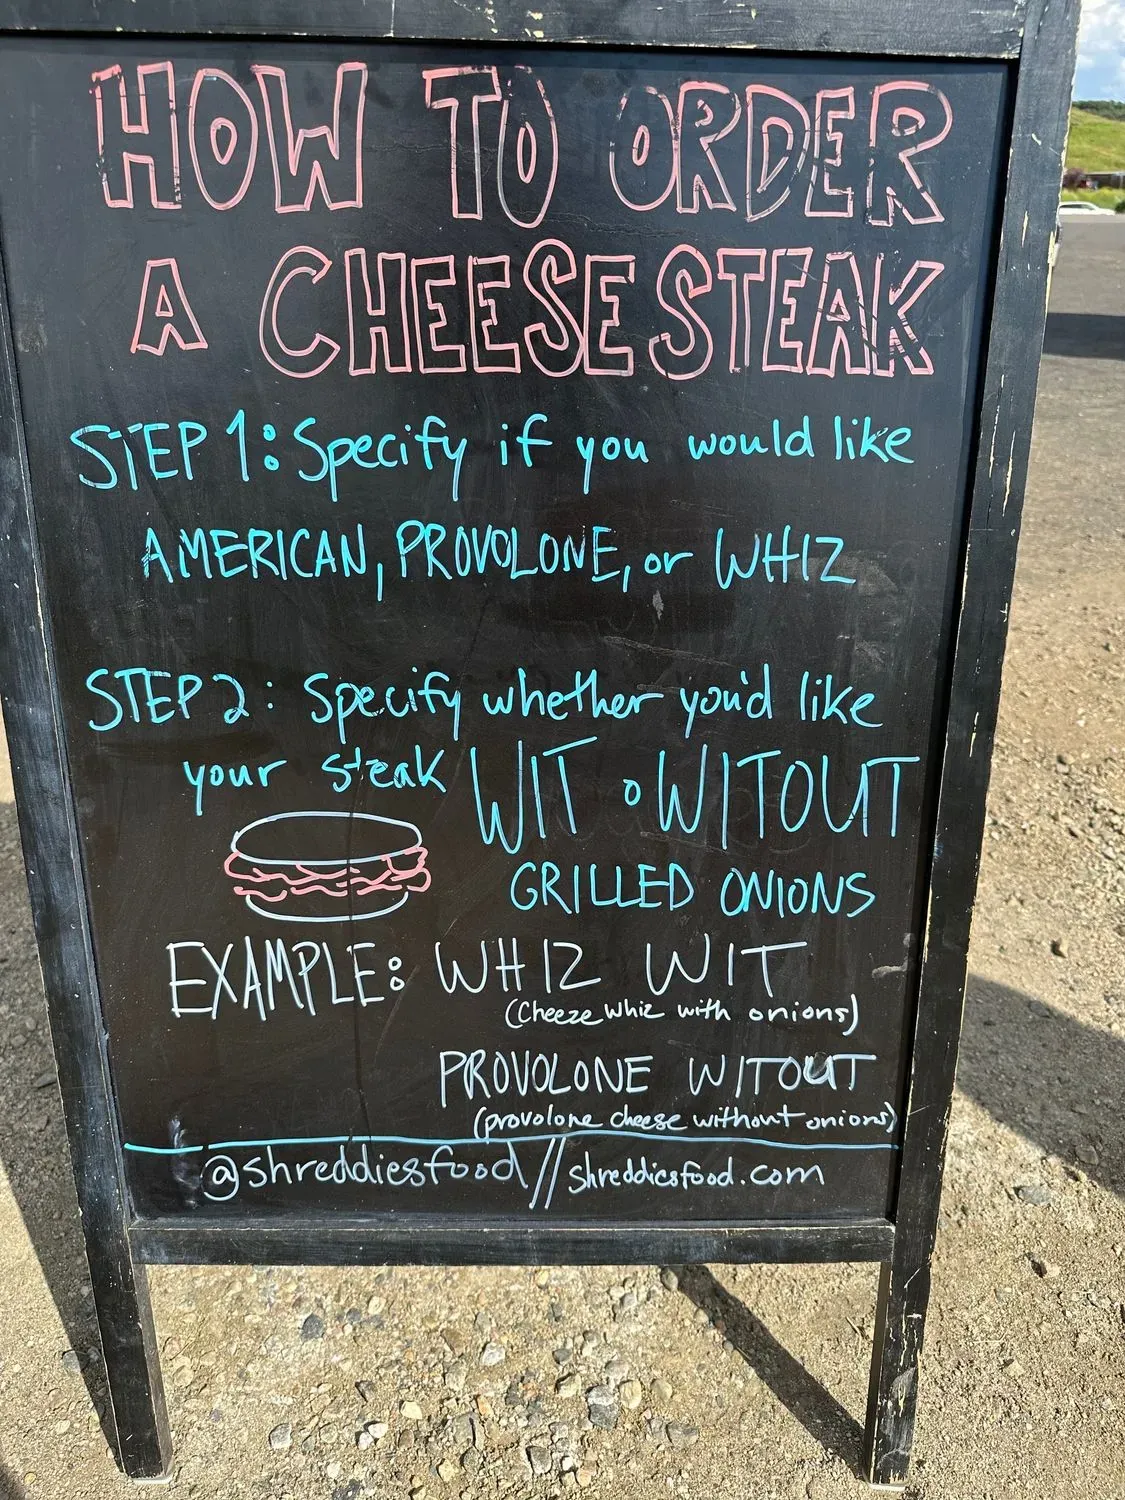 HOW TO ORDER
A CHEESESTEAK
STEP 1: Specify if you would like
AMERICAN, PROVOLONE, or WHIZ
STEP 2: Specify whether you'd like
your steak WIT o WITOUT
GRILLED ONIONS
EXAMPLE: WHIZ WIT
(Cheeze Whiz with onions)
PROVOLONE WITOUT
(provolone cheese without onions)
@shreddiesfood // shreddiesfood.com